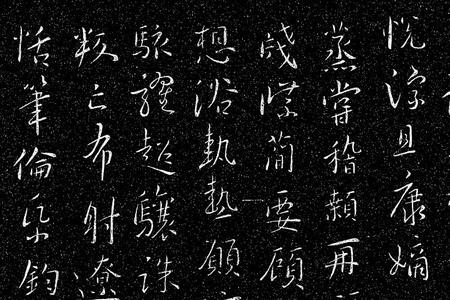 悅豫且康嫡
蒸嘗稽顙再
牋牒簡要顧
想浴執熱願
駭躍超驤誅
叛亡布射遼
恬筆倫紙鈞